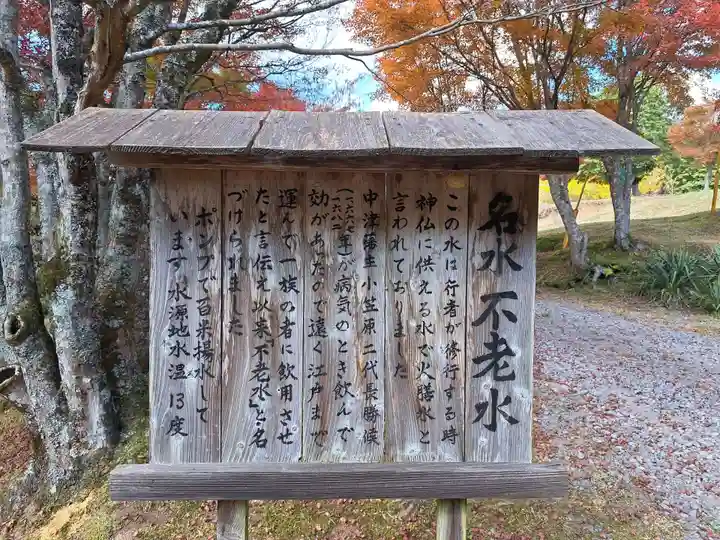 名水 不老水
この水は行者が修行する時
神仏に供える水で火膳水と
言われておりました
中津藩主小笠原二代長勝候
(一六六七〜一六八二年)が病気のとき飲んで
効があったので遠く江戸まで
運んで一族の者に飲用させ
たと言伝え以来「不老水」と名
づけられました
ポンプで百米揚水して
います 水源地水温 13度